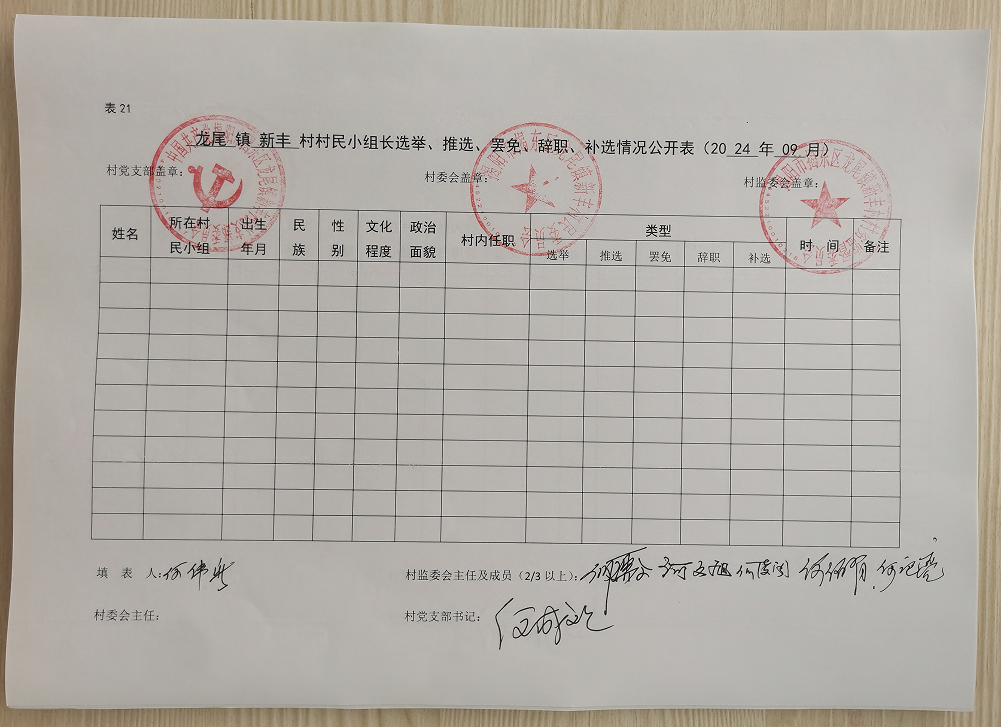 表21
龙尾 镇 新丰 村村民小组长选举、推选、罢免、辞职、补选情况公开表（20 24 年 09 月）
村党支部盖章： 村委会盖章： 村监委会盖章：
姓名 所在村民小组 出生年月 民族 性别 文化程度 政治面貌 村内任职 类型 时 间 备注
选举 推选 罢免 辞职 补选
填 表 人：何伟 村监委会主任及成员（2/3以上）：
村委会主任： 村党支部书记：